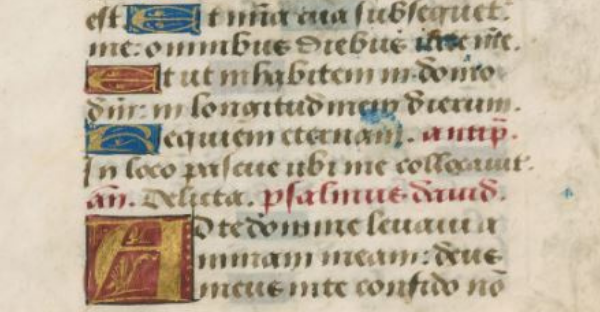 est. Et mīa tua subsequet᷑
me: omnibus diebus vite mē.
Et ut inhabitem in domo
dn̄i: in longitudinem dierum.
Requiem eternam. antip̄.
In loco pascue ubi me collocavit.
an̄. Delicta. psalmus david.
Ad te domine levavi a
nimam meam: deus
meus in te confido nō